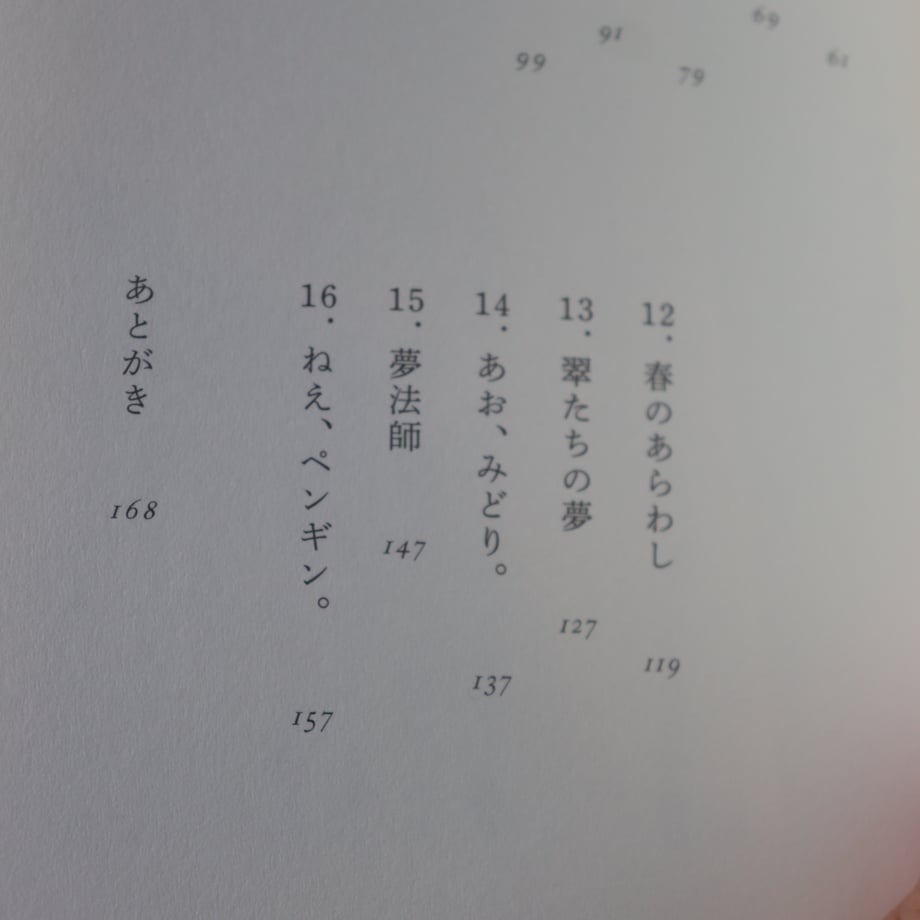 61
69
79
91
99
12. 春のあらわし 119
13. 翠たちの夢 127
14. あお、みどり。 137
15. 夢法師 147
16. ねえ、ペンギン。 157
あとがき 168